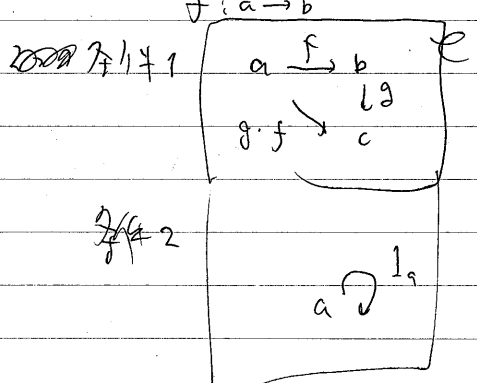 f : a → b
条件1
a f→ b C
↓g
g・f ↘ c
条件2
1a
a